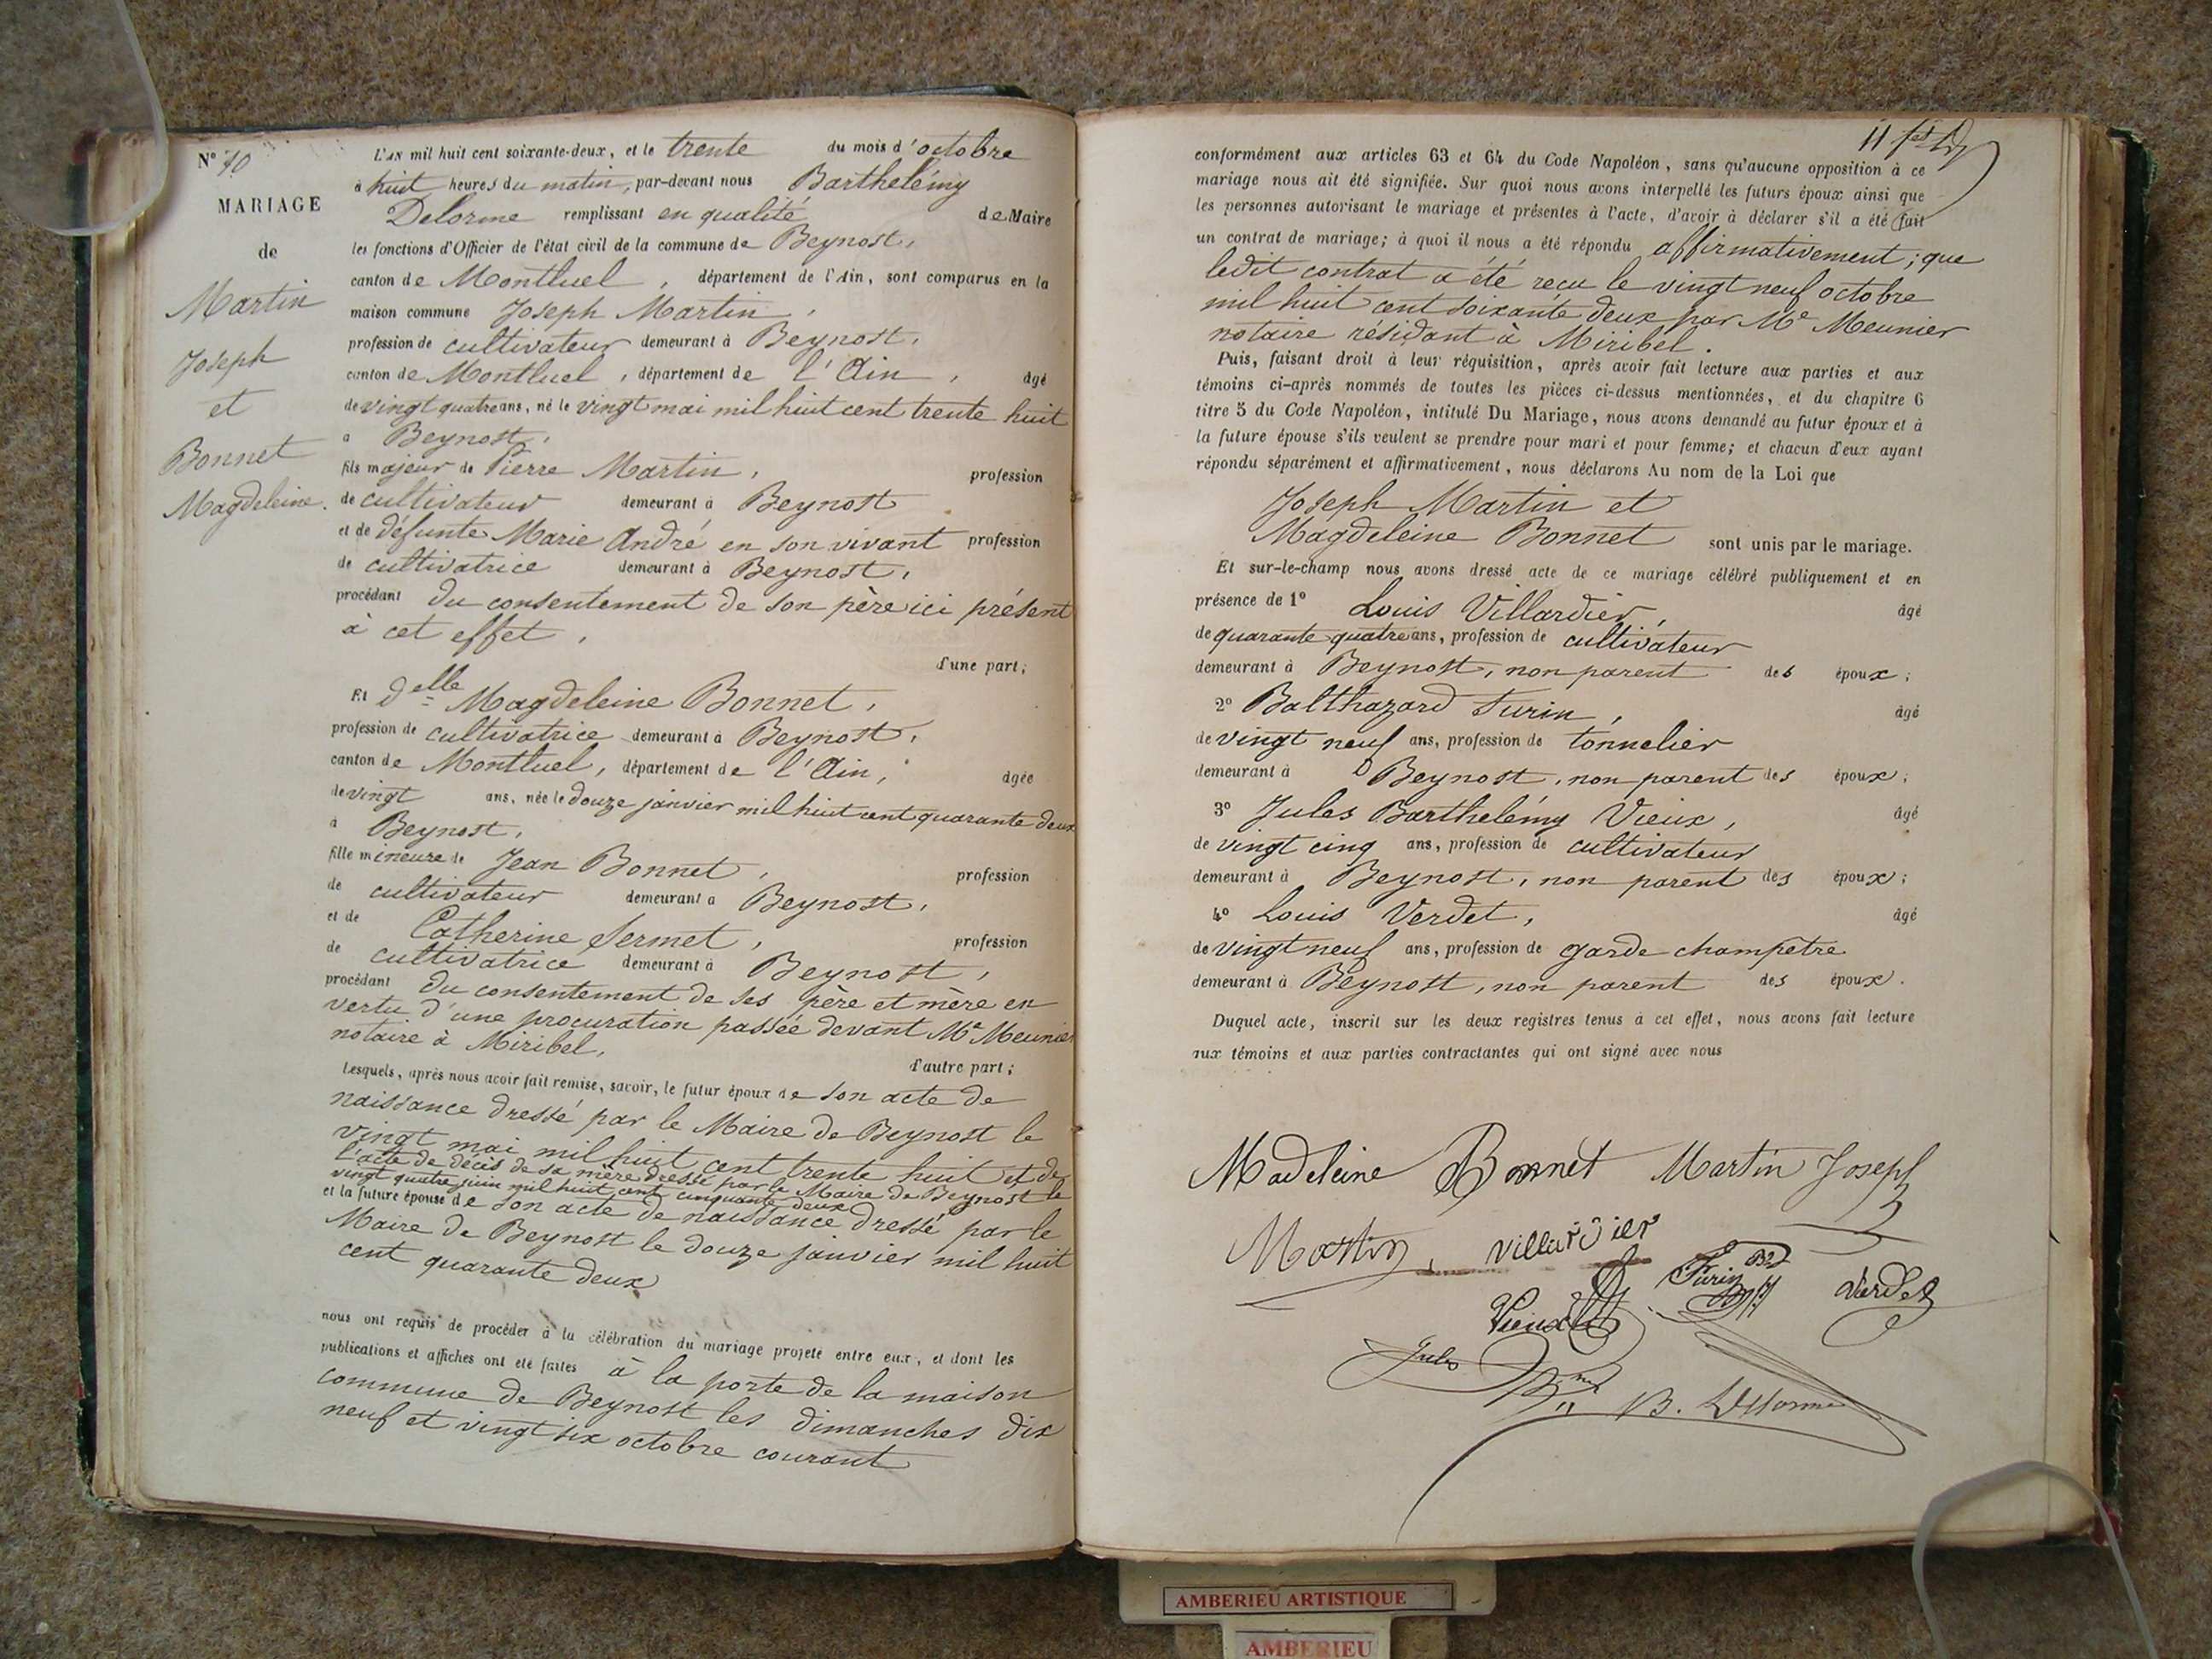 Nº 10
MARIAGE
de
Martin
Joseph
et
Bonnet
Magdeleine.
L'AN mil huit cent soixante-deux, et le trente du mois d'octobre
à huit heures du matin, par-devant nous Barthelémy
Delorme remplissant en qualité de Maire
les fonctions d'Officier de l'état civil de la commune de Beynost,
canton de Montluel, département de l'Ain, sont comparus en la
maison commune Joseph Martin,
profession de cultivateur demeurant à Beynost,
canton de Montluel, département de l'Ain, âgé
de vingt quatre ans, né le vingt mai mil huit cent trente huit
à Beynost,
fils majeur de Pierre Martin, profession
de cultivateur demeurant à Beynost
et de défunte Marie André en son vivant profession
de cultivatrice demeurant à Beynost,
procédant du consentement de son père ici présent
à cet effet,
d'une part;
Et delle Magdeleine Bonnet,
profession de cultivatrice demeurant à Beynost,
canton de Montluel, département de l'Ain, âgée
de vingt ans, née le douze janvier mil huit cent quarante deux
à Beynost,
fille mineure de Jean Bonnet, profession
de cultivateur demeurant à Beynost,
et de Catherine Sermet, profession
de cultivatrice demeurant à Beynost,
procédant du consentement de ses père et mère en
vertu d'une procuration passée devant Me Meunier
notaire à Miribel,
d'autre part;
Lesquels, après nous avoir fait remise, savoir, le futur époux de son acte de
naissance dressé par le Maire de Beynost le
vingt mai mil huit cent trente huit et de
l'acte de décès de sa mère dressé par le Maire de Beynost le
vingt quatre juin mil huit cent cinquante deux
et la future épouse de son acte de naissance dressé par le
Maire de Beynost le douze janvier mil huit
cent quarante deux
nous ont requis de procéder à la célébration du mariage projeté entre eux, et dont les
publications et affiches ont été faites à la porte de la maison
commune de Beynost les dimanches dix
neuf et vingt six octobre courant
11
conformément aux articles 63 et 64 du Code Napoléon, sans qu'aucune opposition à ce
mariage nous ait été signifiée. Sur quoi nous avons interpellé les futurs époux ainsi que
les personnes autorisant le mariage et présentes à l'acte, d'avoir à déclarer s'il a été fait
un contrat de mariage; à quoi il nous a été répondu affirmativement; que
ledit contrat a été reçu le vingt neuf octobre
mil huit cent soixante deux par Me Meunier
notaire résidant à Miribel.
Puis, faisant droit à leur réquisition, après avoir fait lecture aux parties et aux
témoins ci-après nommés de toutes les pièces ci-dessus mentionnées, et du chapitre 6
titre 5 du Code Napoléon, intitulé Du Mariage, nous avons demandé au futur époux et à
la future épouse s'ils veulent se prendre pour mari et pour femme; et chacun d'eux ayant
répondu séparément et affirmativement, nous déclarons Au nom de la Loi que
Joseph Martin et
Magdeleine Bonnet sont unis par le mariage.
Et sur-le-champ nous avons dressé acte de ce mariage célébré publiquement et en
présence de 1º Louis Villardier, âgé
de quarante quatre ans, profession de cultivateur
demeurant à Beynost, non parent des époux;
2º Balthazard Furin, âgé
de vingt neuf ans, profession de tonnelier
demeurant à Beynost, non parent des époux;
3º Jules Barthelémy Vieux, âgé
de vingt cinq ans, profession de cultivateur
demeurant à Beynost, non parent des époux;
4º Louis Verdet, âgé
de vingt neuf ans, profession de garde champetre
demeurant à Beynost, non parent des époux.
Duquel acte, inscrit sur les deux registres tenus à cet effet, nous avons fait lecture
aux témoins et aux parties contractantes qui ont signé avec nous
Madeleine Bonnet Martin Joseph
Martin villardier
Furin Verdet
Vieux
Jules
B. Delorme
AMBERIEU ARTISTIQUE
AMBERIEU